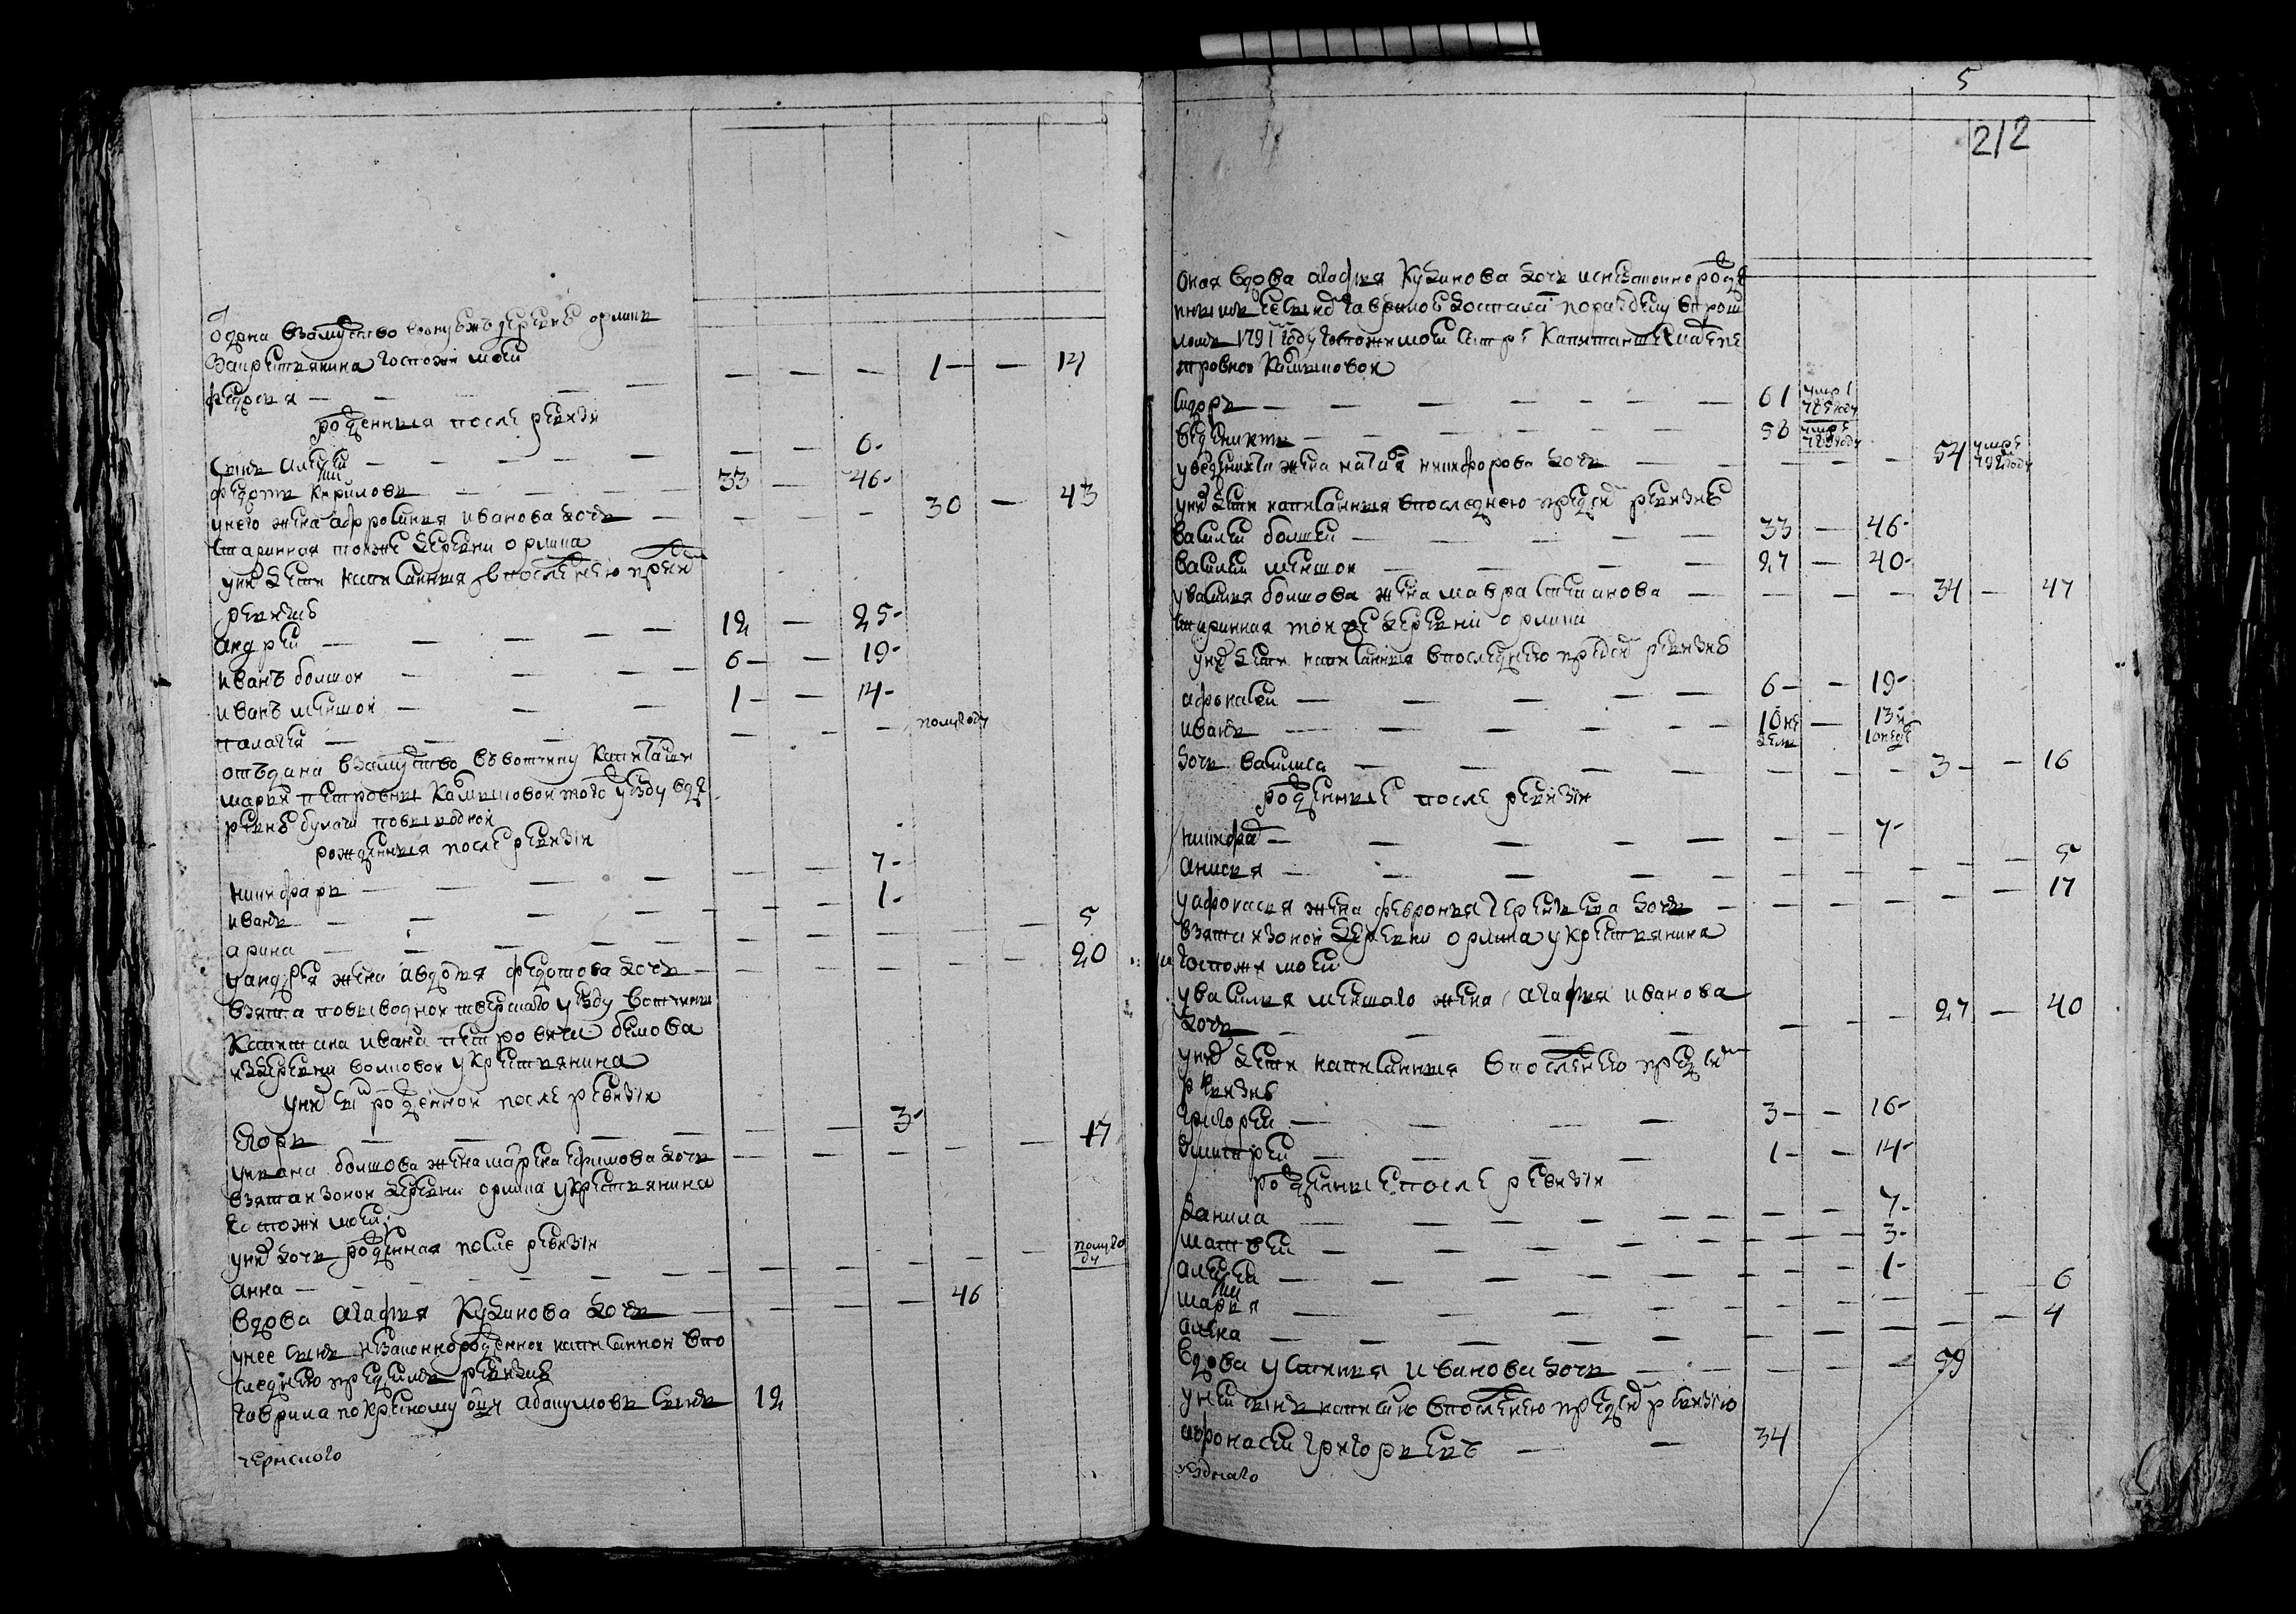 5
212
одана взамуство воонуюжъ деревню орлин
Закрестьянина госпожи моей
федосья — — — — — — — 1 — — 14
рожденныя после ревизи
Сынъ Алексей — — — — — — 6-
федотъ Кирилловъ — — — 33 — 46-
унего жена афросинья иванова дочь — — — — 30 — 43
старинная тояже деревни орлина
уних дети написанныя впоследнею пред
ревизию
андрей — — — — — 12 — 25-
Иванъ болшои — — — — 6 — — 19-
иванъ меншои — — — 1 — — 14-
палагея — — — — — — — полугоду
отъдана взамуство въвотчину Капитанши
марьи петровны Калышовои того уезду вде
ревню булаш повыводнои
рожденныя после ревизiи
никифаръ — — — — — — 7-
иванъ — — — — — — 1-
арина — — — — — — — — — 5
уандрея жена авдотья федотова дочь — — — — — — 20
взята повыводнои тверскаго уезду вотчины
Капитана ивана петровича белова
издеревни волковои укрестьянина
уних сын рожденнои после ревизiи
Егоръ — — — — — — 3-
уивана болшова жена марья ефимова дочь — — — — — 17
взята изонои деревни орлина укрестьянина
госпожи моей
уних дочь рожденная после ревизiи
анна — — — — — — — — — — полуго
ду
вдова Агафья Кузминова дочь — — — — 46
унее сынъ незаконнорожденнои написаннои впо
следнею пред сим ревизию
гаврила покресному отцу абакумовъ сынъ 12
оная вдова агафья Кузминова дочь и снезаконнорожде
ннымъ ее сыномъ гавриломъ досталас поразделу впрош
ломъ 1791 году госпожи моей сестре Капитанше марье пе
тровнои Калышовои
Сидоръ — — — — — — — 61 умре
785году
веденихтъ — — — — — — 58 умре
788году
уведенихта жена наталя никифорова дочь — — — — — 54 умре
792году
уних дети написанныя впоследнею пред сим ревизию
василеи болшеи — — — — — 33 — 46-
василеи меншои — — — — 27 — 40-
увасилья болшова жена мавра степанова — — — — 34 — 47
старинная тоя же деревни орлина
уних дети написанныя впоследнею пред сим ревизию
афонасеи — — — — — 6- — 19-
иванъ — — — — — — 10не
дель — 13и
10неде
дочь василиса — — — — — — — — 3- — 16
рожденные после ревизiи
никифар — — — — — — — 7-
аниси — — — — — — — — — 5
уафонасья жена февронья терентьева дочь — — — — — — 17
взята изонои деревни орлина укрестьянина
госпожи моей
увасилья меншаго жена агафья иванова
дочь — — — — — — 27 — 40
уних дети написанныя впоследнею пред сим
ревизию
григореи — — — — 3- — 16-
дмитреи — — — — 1- — 14-
рожденные после ревизiи
данила — — — — — — — 7-
матвеи — — — — — — — 3-
алексеи — — — — — — — 1-
марья — — — — — — — — — — 6
алена — — — — — — — — — — 4
вдова устинья иванова дочь — — — — — 59
унеи сынъ написан впоследнею пред сим ревизiю
афонасеи григорьевъ — — 34